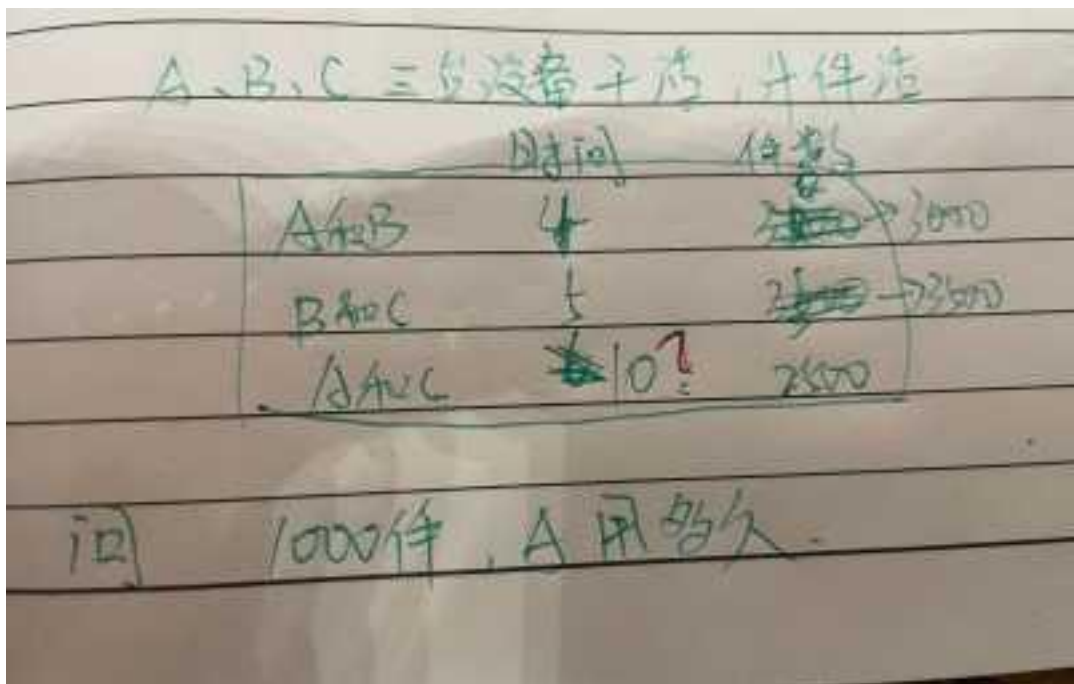 A、B、C 三台设备干活,计件活
时间 件数
A和B 4 → 3000
B和C 5 → 3500
A和C 10? 2500
问 1000件,A用多久.